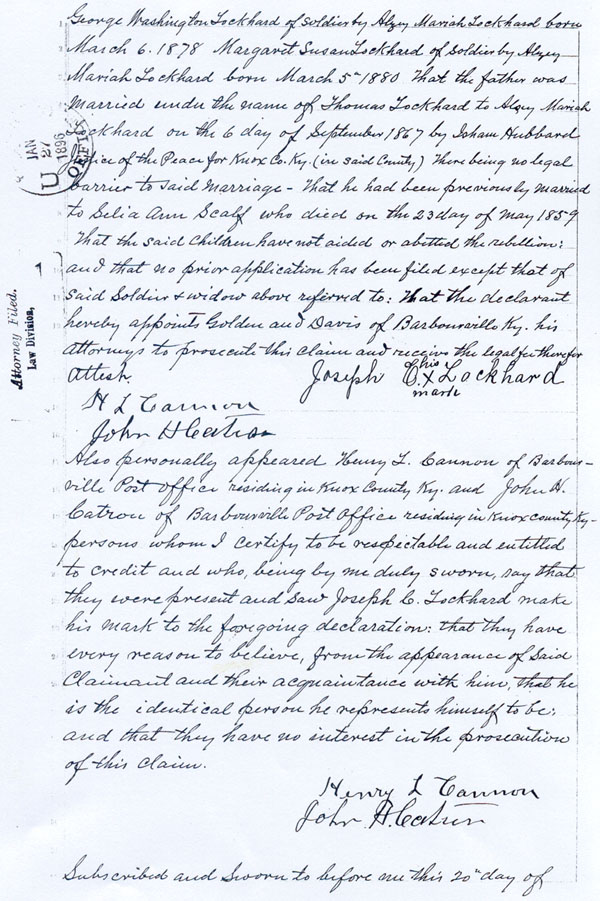 George Washington Lockhard of soldier by Alzey Mariah Lockhard born
March 6. 1878 Margaret Susan Lockhard of Soldier by Alzey
Mariah Lockhard born March 5th 1880 That the father was
married under the name of Thomas Lockhard to Alzey Mariah
Lockhard on the 6 day of September 1867 by Isham Hubbard
Justice of the Peace for Knox Co. Ky. (in said County) There being no legal
barrier to said marriage - That he had been previously married
to Selia Ann Scalf who died on the 23 day of May 1859
That the said Children have not aided or abetted the rebellion:
and that no prior application has been filed except that of
said Soldier & widow above referred to: That the declarant
hereby appoints Golden and Davis of Barbourville Ky. his
attorneys to prosecute this claim and receive the legal fee therefor
Attest.
Joseph C. his x Lockhard
mark
H L Cannon
John H Catron
Also personally appeared Henry L. Cannon of Barbours-
ville Post Office residing in Knox County Ky. and John H.
Catron of Barbourville Post Office residing in Knox County Ky-
persons whom I certify to be respectable and entitled
to credit and who, being by me duly sworn, say that
they were present and saw Joseph C. Lockhard make
his mark to the foregoing declaration: that they have
every reason to believe, from the appearance of said
Claimant and their acquaintance with him, that he
is the identical person he represents himself to be:
and that they have no interest in the prosecution
of this claim.
Henry L Cannon
John H. Catron
Subscribed and Sworn to before me this 20th day of
JAN
27
1896
U
OFFIC
Attorney Filed.
Law Division,